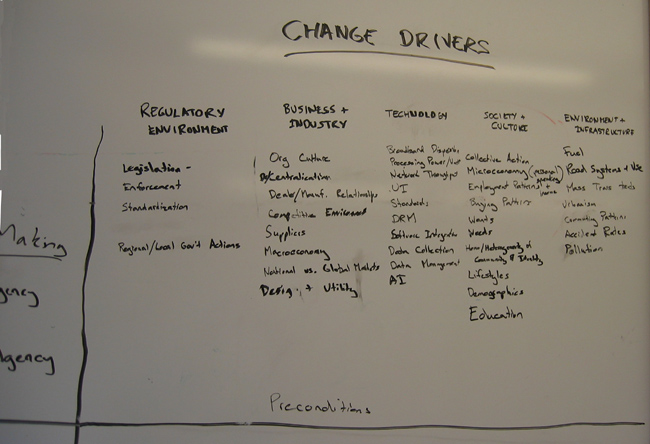 CHANGE DRIVERS
REGULATORY
ENVIRONMENT
Legislation -
Enforcement
Standardization
Regional/Local Gov't Actions
BUSINESS +
INDUSTRY
Org Culture
D/Centralization
Dealer/Manuf. Relationships
Competitive Environment
Suppliers
Macroeconomy
National vs. Global Markets
Design + Utility
TECHNOLOGY
Broadband
Processing Power
Network
UI
Standards
DRM
Software Integration
Data Collection
Data Management
AI
SOCIETY +
CULTURE
Collective Action
Microeconomy (personal
spending
Employment Patterns +
Buying Patterns
Wants
Needs
Homo/Heterogeneity of
Community & Identity
Lifestyles
Demographics
Education
ENVIRONMENT +
INFRASTRUCTURE
Fuel
Road Systems + Use
Mass Trans
Urbanism
Commuting Patterns
Accident Rates
Pollution
Making
gency
Agency
Preconditions